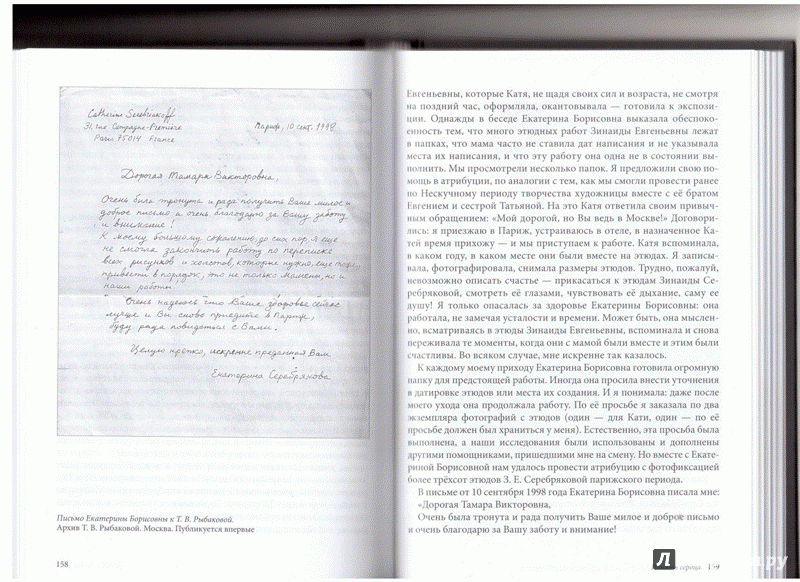 Catherine Serebriakoff
31, rue Campagne-Première
Paris 75014 France
Париж, 10 сент. 1998
Дорогая Тамара Викторовна,
Очень была тронута и рада получить Ваше милое и
доброе письмо и очень благодарю за Вашу заботу
и внимание!
К моему большому сожалению, до сих пор я ещё
не смогла закончить работу по переписке
всех рисунков и холстов, которые нужно, еще
привести в порядок, это не только мамины, но и
наши работы
Очень надеюсь что Ваше здоровье сейчас
лучше и Вы снова приедете в Париж,
буду рада повидаться с Вами.
Целую крепко, искренне преданная Вам
Екатерина Серебрякова
Письмо Екатерины Борисовны к Т. В. Рыбаковой.
Архив Т. В. Рыбаковой. Москва. Публикуется впервые
158
Евгеньевны, которые Катя, не щадя своих сил и возраста, не смотря
на поздний час, оформляла, окантовывала — готовила к экспози-
ции. Однажды в беседе Екатерина Борисовна выказала обеспоко-
енность тем, что много этюдных работ Зинаиды Евгеньевны лежат
в папках, что мама часто не ставила дат написания и не указывала
места их написания, и что эту работу она одна не в состоянии вы-
полнить. Мы просмотрели несколько папок. Я предложили свою по-
мощь в атрибуции, по аналогии с тем, как мы смогли провести ранее
по Нескучному периоду творчества художницы вместе с её братом
Евгением и сестрой Татьяной. На это Катя ответила своим привыч-
ным обращением: «Мой дорогой, но Вы ведь в Москве!» Договори-
лись: я приезжаю в Париж, устраиваюсь в отеле, в назначенное Ка-
тей время прихожу — и мы приступаем к работе. Катя вспоминала,
в каком году, в каком месте они были вместе на этюдах. Я записы-
вала, фотографировала, снимала размеры этюдов. Трудно, пожалуй,
невозможно описать счастье — прикасаться к этюдам Зинаиды Се-
ребряковой, смотреть её глазами, чувствовать её дыхание, саму ее
душу! Я только опасалась за здоровье Екатерины Борисовны: она
работала, не замечая усталости и времени. Может быть, она мыслен-
но, всматриваясь в этюды Зинаиды Евгеньевны, вспоминала и снова
переживала те моменты, когда они с мамой были вместе и этим были
счастливы. Во всяком случае, мне искренне так казалось.
К каждому моему приходу Екатерина Борисовна готовила огромную
папку для предстоящей работы. Иногда она просила внести уточнения
в датировке этюдов или места их создания. И я понимала: даже после
моего ухода она продолжала работу. По её просьбе я заказала по два
экземпляра фотографий с этюдов (один — для Кати, один — по её
просьбе должен был храниться у меня). Естественно, эта просьба была
выполнена, а наши исследования были использованы и дополнены
другими помощниками, пришедшими мне на смену. Но вместе с Екате-
риной Борисовной нам удалось провести атрибуцию с фотофиксацией
более трёхсот этюдов З. Е. Серебряковой парижского периода.
В письме от 10 сентября 1998 года Екатерина Борисовна писала мне:
«Дорогая Тамара Викторовна,
Очень была тронута и рада получить Ваше милое и доброе письмо
и очень благодарю за Вашу заботу и внимание!
сердца 159